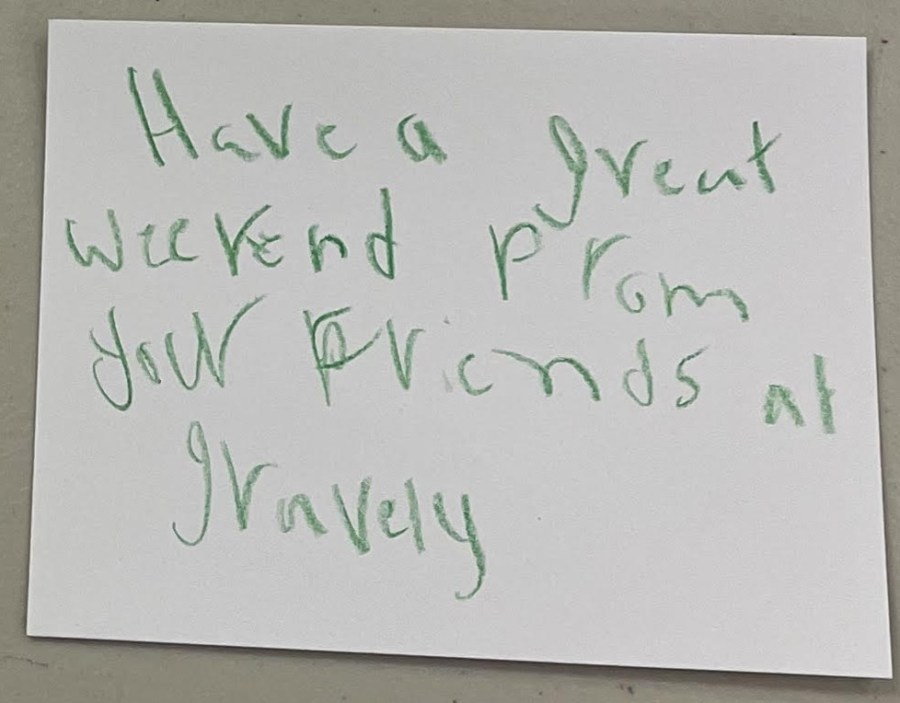 Have a great
weekend From
your Friends at
gravely